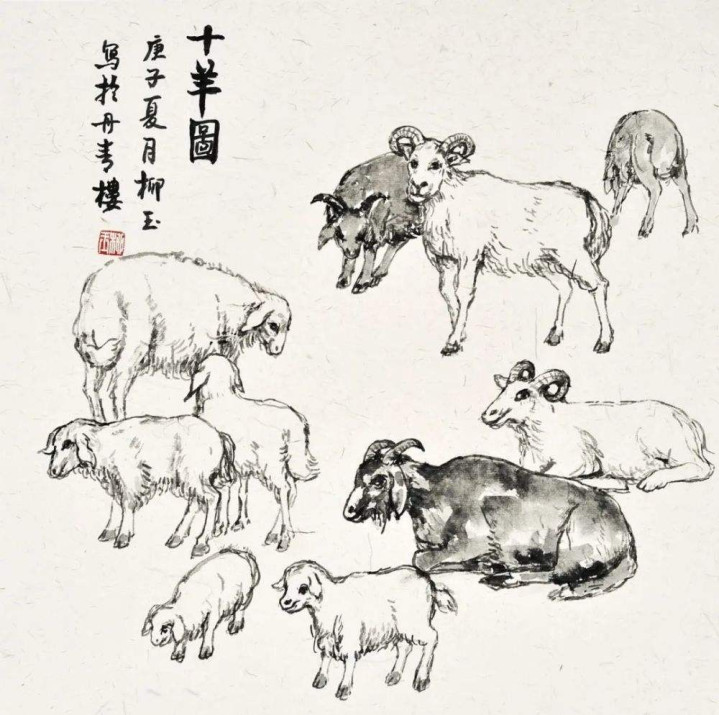 十羊圖
庚子夏月柳玉
寫於丹青樓